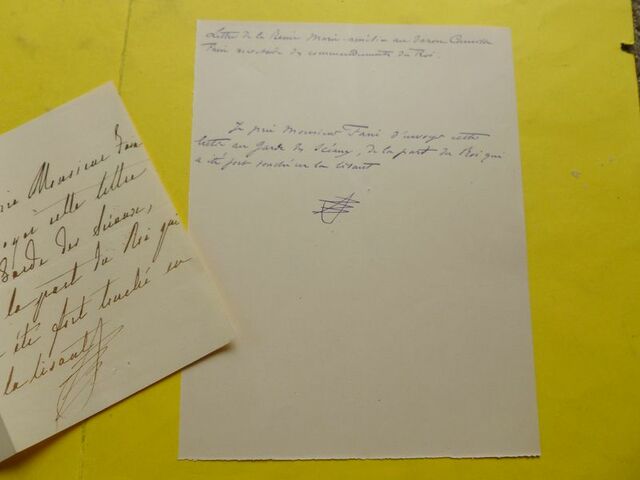 rie Monsieur Fan
oyer cette lettre
Garde des Sceaux,
la part du Roi qui
été fort touché en
la lisant
Lettre de la Reine Marie-Amélie au Baron Camille
Fain secrétaire des commandements du Roi.
Je prie Monsieur Fain d'envoyer cette
lettre au Garde des Sceaux, de la part du Roi qui
a été fort touché en la lisant